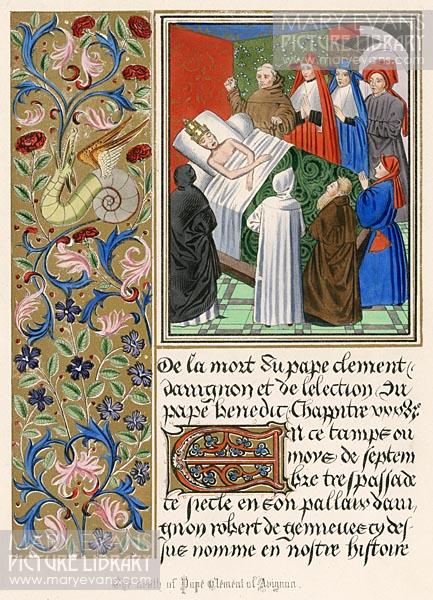 MARY EVANS
PICTURE LIBRARY
De la mort du pape clement
davignon et de lelection du
pape benedic Chapitre
En ce tamps ou
moys de septem
bre trespassa de
ce siecle en son pallais davi
gnon robert de genneues cy des
sus nomme en nostre histoire
MARY EVANS
PICTURE LIBRARY
www.maryevans.com
The death of Pope Clement of Avignon.